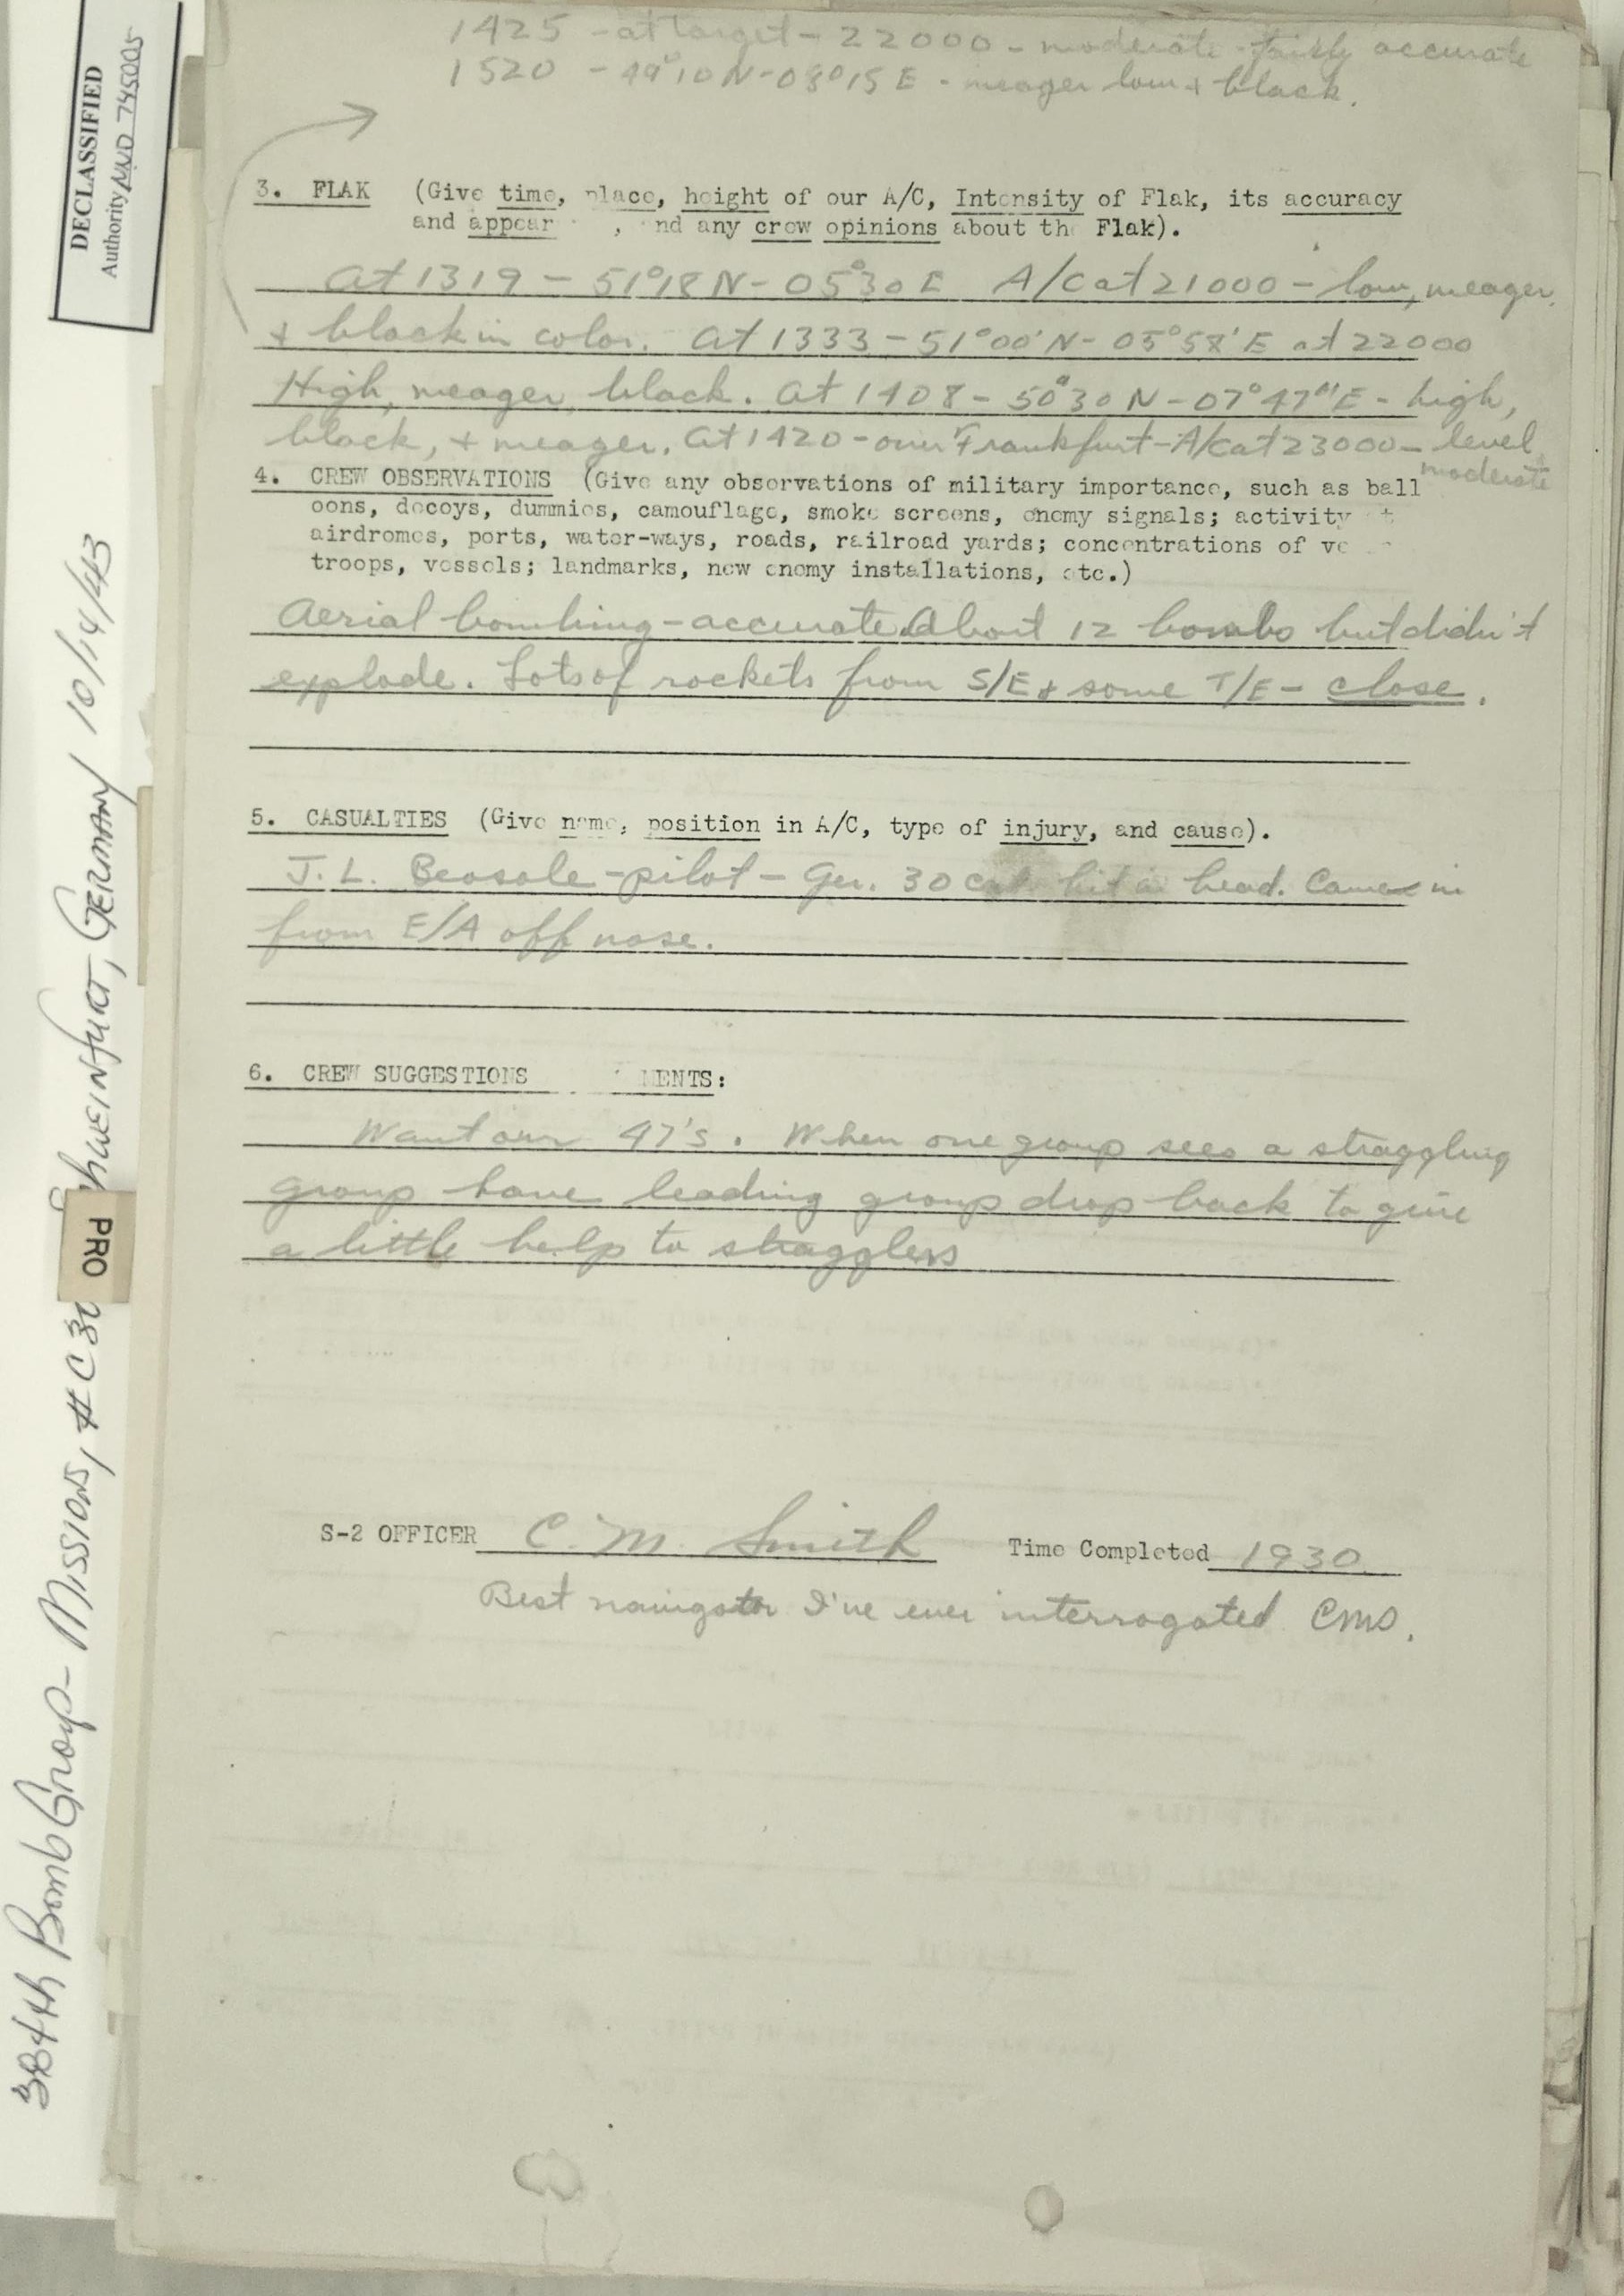 1425 - at target - 22000 - moderate - fairly accurate
1520 - 49°10 N - 08°15 E - meager low + black.
DECLASSIFIED
Authority NND 745005
3. FLAK (Give time, place, height of our A/C, Intensity of Flak, its accuracy
and appear , nd any crew opinions about the Flak).
At 1319 - 51°18 N - 05°30 E A/C at 21000 - low, meager,
+ black in color. At 1333 - 51°00' N - 05°58' E at 22000
High, meager, black. At 1408 - 50°30 N - 07°47" E - high,
black, + meager. At 1420 - over Frankfurt - A/C at 23000 - level
moderate
4. CREW OBSERVATIONS (Give any observations of military importance, such as ball
oons, decoys, dummies, camouflage, smoke screens, enemy signals; activity
airdromes, ports, water-ways, roads, railroad yards; concentrations of ve
troops, vessels; landmarks, new enemy installations, etc.)
Aerial bombing - accurate. About 12 bombs but didn't
explode. Lots of rockets from S/E + some T/E - close.
5. CASUALTIES (Give name, position in A/C, type of injury, and cause).
J. L. - pilot - Ger. 30 cal. hit in head. Came in
from E/A off nose.
6. CREW SUGGESTIONS MENTS:
Want our 47's. When one group sees a straggling
group have leading group drop back to give
a little help to stragglers
S-2 OFFICER C. M. Smith Time Completed 1930
Best navigator I've ever interrogated CMS.
384th Bomb Group - Missions, # C 30 chweinfurt, Germany 10/14/43
PRO